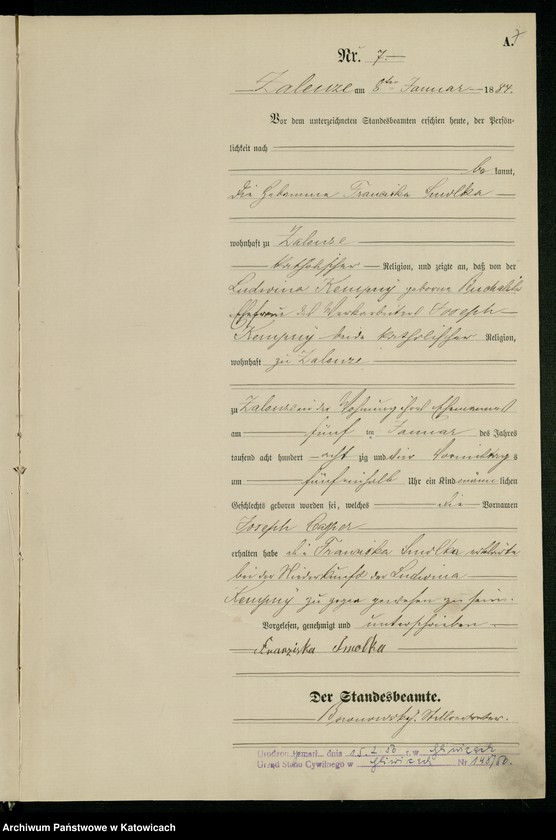 A. 7
Nr. 7.
Zalenze am 8ten Januar 1884.
Vor dem unterzeichneten Standesbeamten erschien heute, der Persön-
lichkeit nach
be kannt,
die Hebamme Franziska Smolka
wohnhaft zu Zalenze
katholischer Religion, und zeigte an, daß von der
Ludwina Kempny geborne
Ehefrau des Werkarbeiters Joseph
Kempny beide katholischer Religion,
wohnhaft zu Zalenze
zu Zalenze in der Wohnung ihres Ehemannes
am fünf ten Januar des Jahres
tausend acht hundert acht zig und vier Vormittags
um fünf einhalb Uhr ein Kind männ lichen
Geschlechts geboren worden sei, welches die Vornamen
Joseph
erhalten habe die Franziska Smolka erklärte
bei der Niederkunft der Ludwina
Kempny zu gegen gewesen zu sein.
Vorgelesen, genehmigt und unterschrieben
Franziska Smolka
Der Standesbeamte.
Stellvertreter.
dnia 15. 50 r. w Gliwicach
Urząd Stanu Cywilnego w Gliwicach Nr 145/50.
Archiwum Państwowe w Katowicach